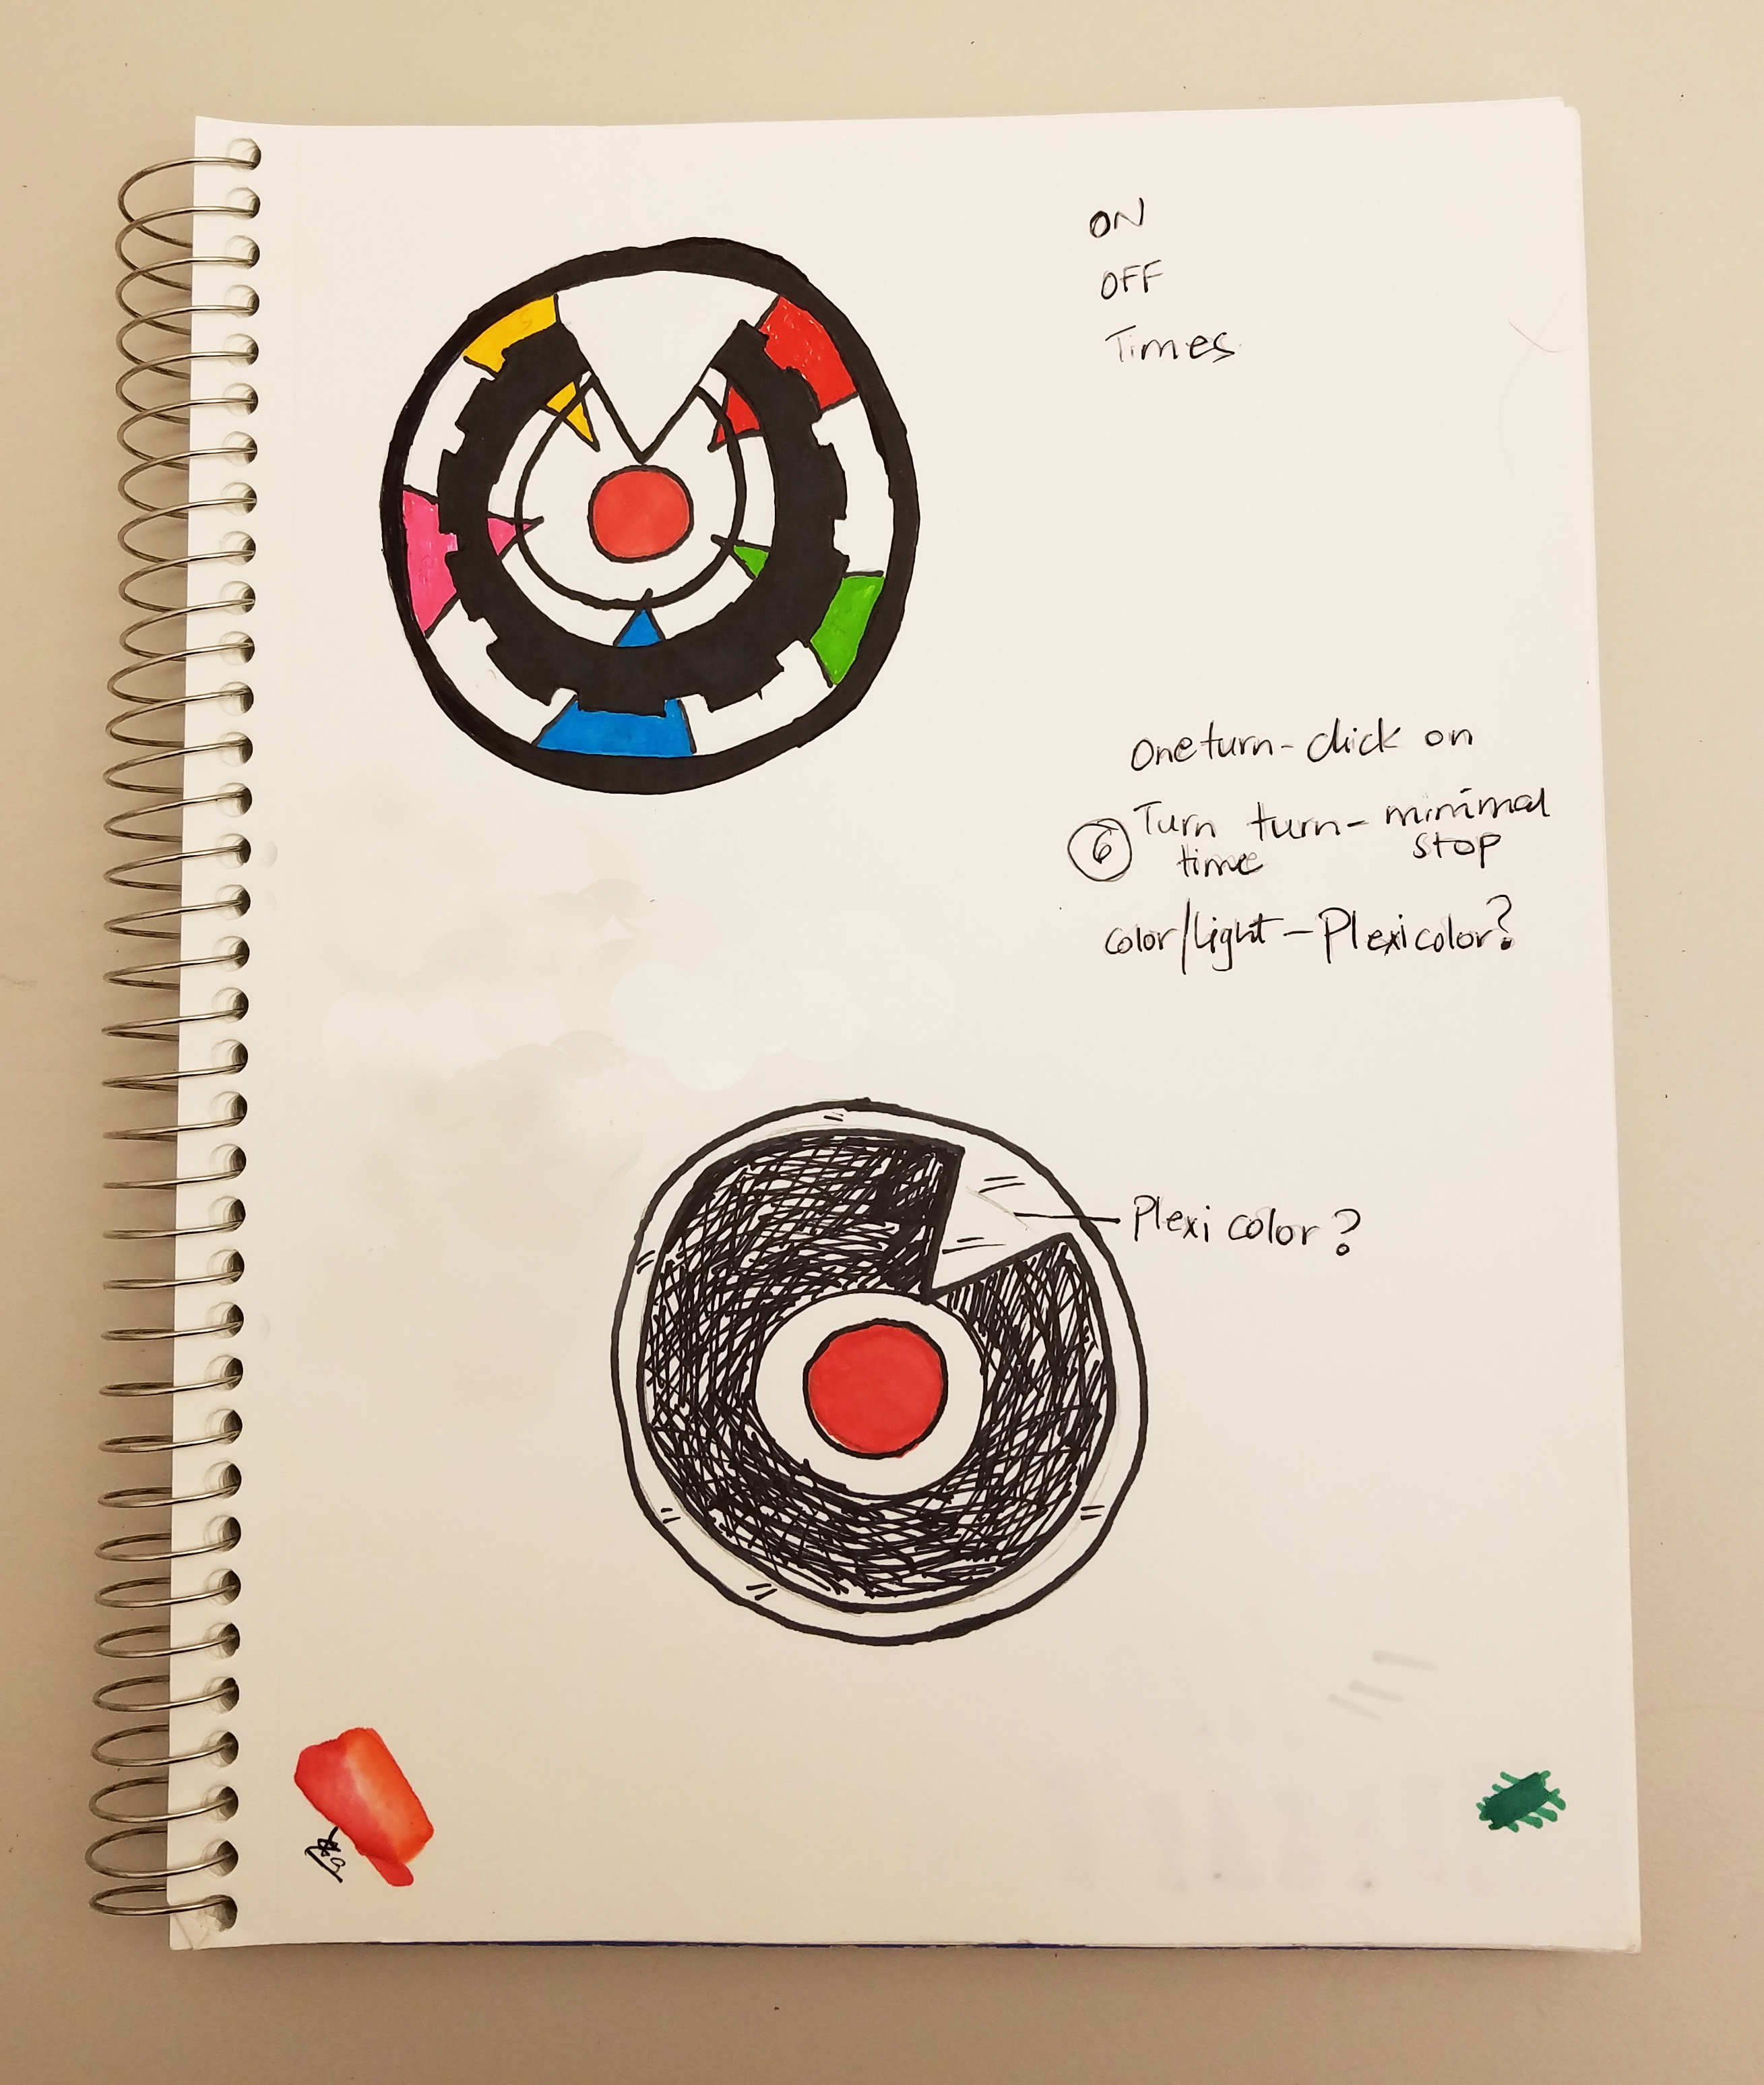 ON
OFF
Times
One turn - click on
6 Turn turn - minimal
time stop
color/light - Plexi color?
Plexi color?